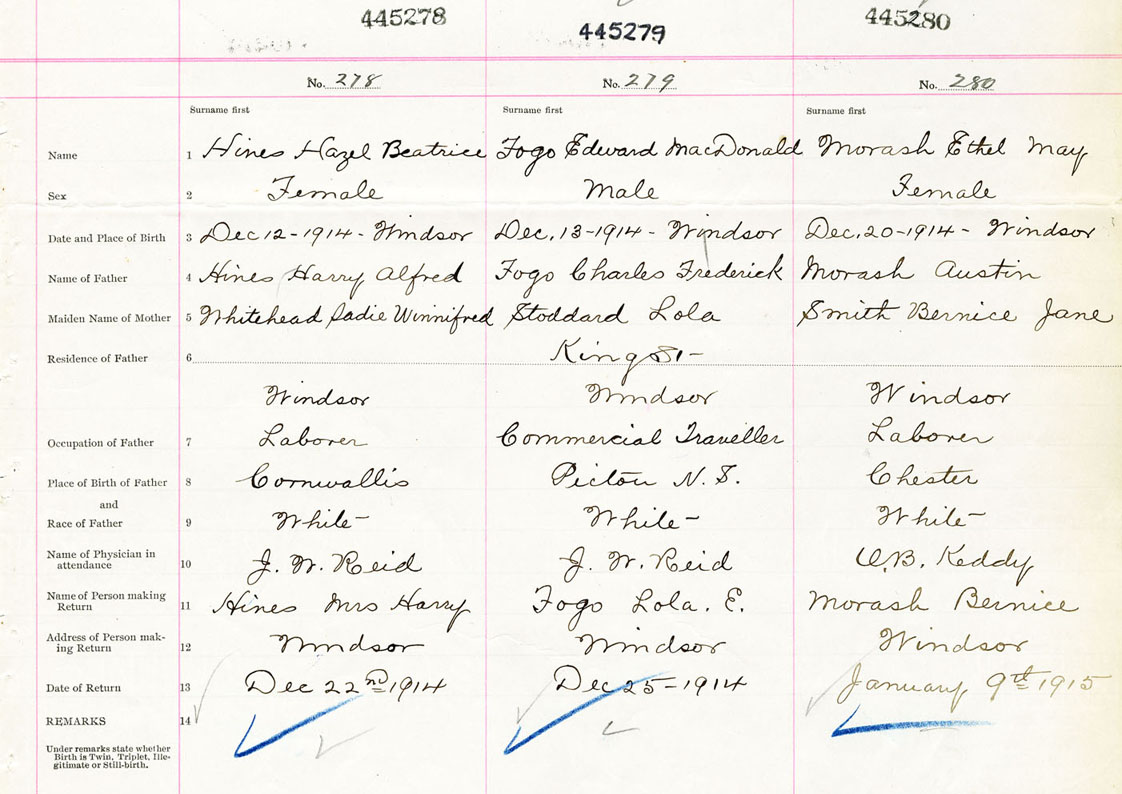 445278 445279 445280
No. 278 No. 279 No. 280
Surname first Surname first Surname first
Name 1 Hines Hazel Beatrice Fogo Edward MacDonald Morash Ethel May
Sex 2 Female Male Female
Date and Place of Birth 3 Dec 12-1914- Windsor Dec. 13-1914- Windsor Dec. 20-1914- Windsor
Name of Father 4 Hines Harry Alfred Fogo Charles Frederick Morash Austin
Maiden Name of Mother 5 Whitehead Sadie Winnifred Stoddard Lola Smith Bernice Jane
Residence of Father 6 King St-
Windsor Windsor Windsor
Occupation of Father 7 Laborer Commercial Traveller Laborer
Place of Birth of Father 8 Cornwallis Pictou N.S. Chester
and
Race of Father 9 White- White- White-
Name of Physician in
attendance 10 J. W. Reid J. W. Reid O.B. Keddy
Name of Person making
Return 11 Hines Mrs Harry Fogo Lola. E. Morash Bernice
Address of Person mak-
ing Return 12 Windsor Windsor Windsor
Date of Return 13 Dec 22nd 1914 Dec 25-1914 January 9th 1915
REMARKS 14
Under remarks state whether
Birth is Twin, Triplet, Ille-
gitimate or Still-birth.